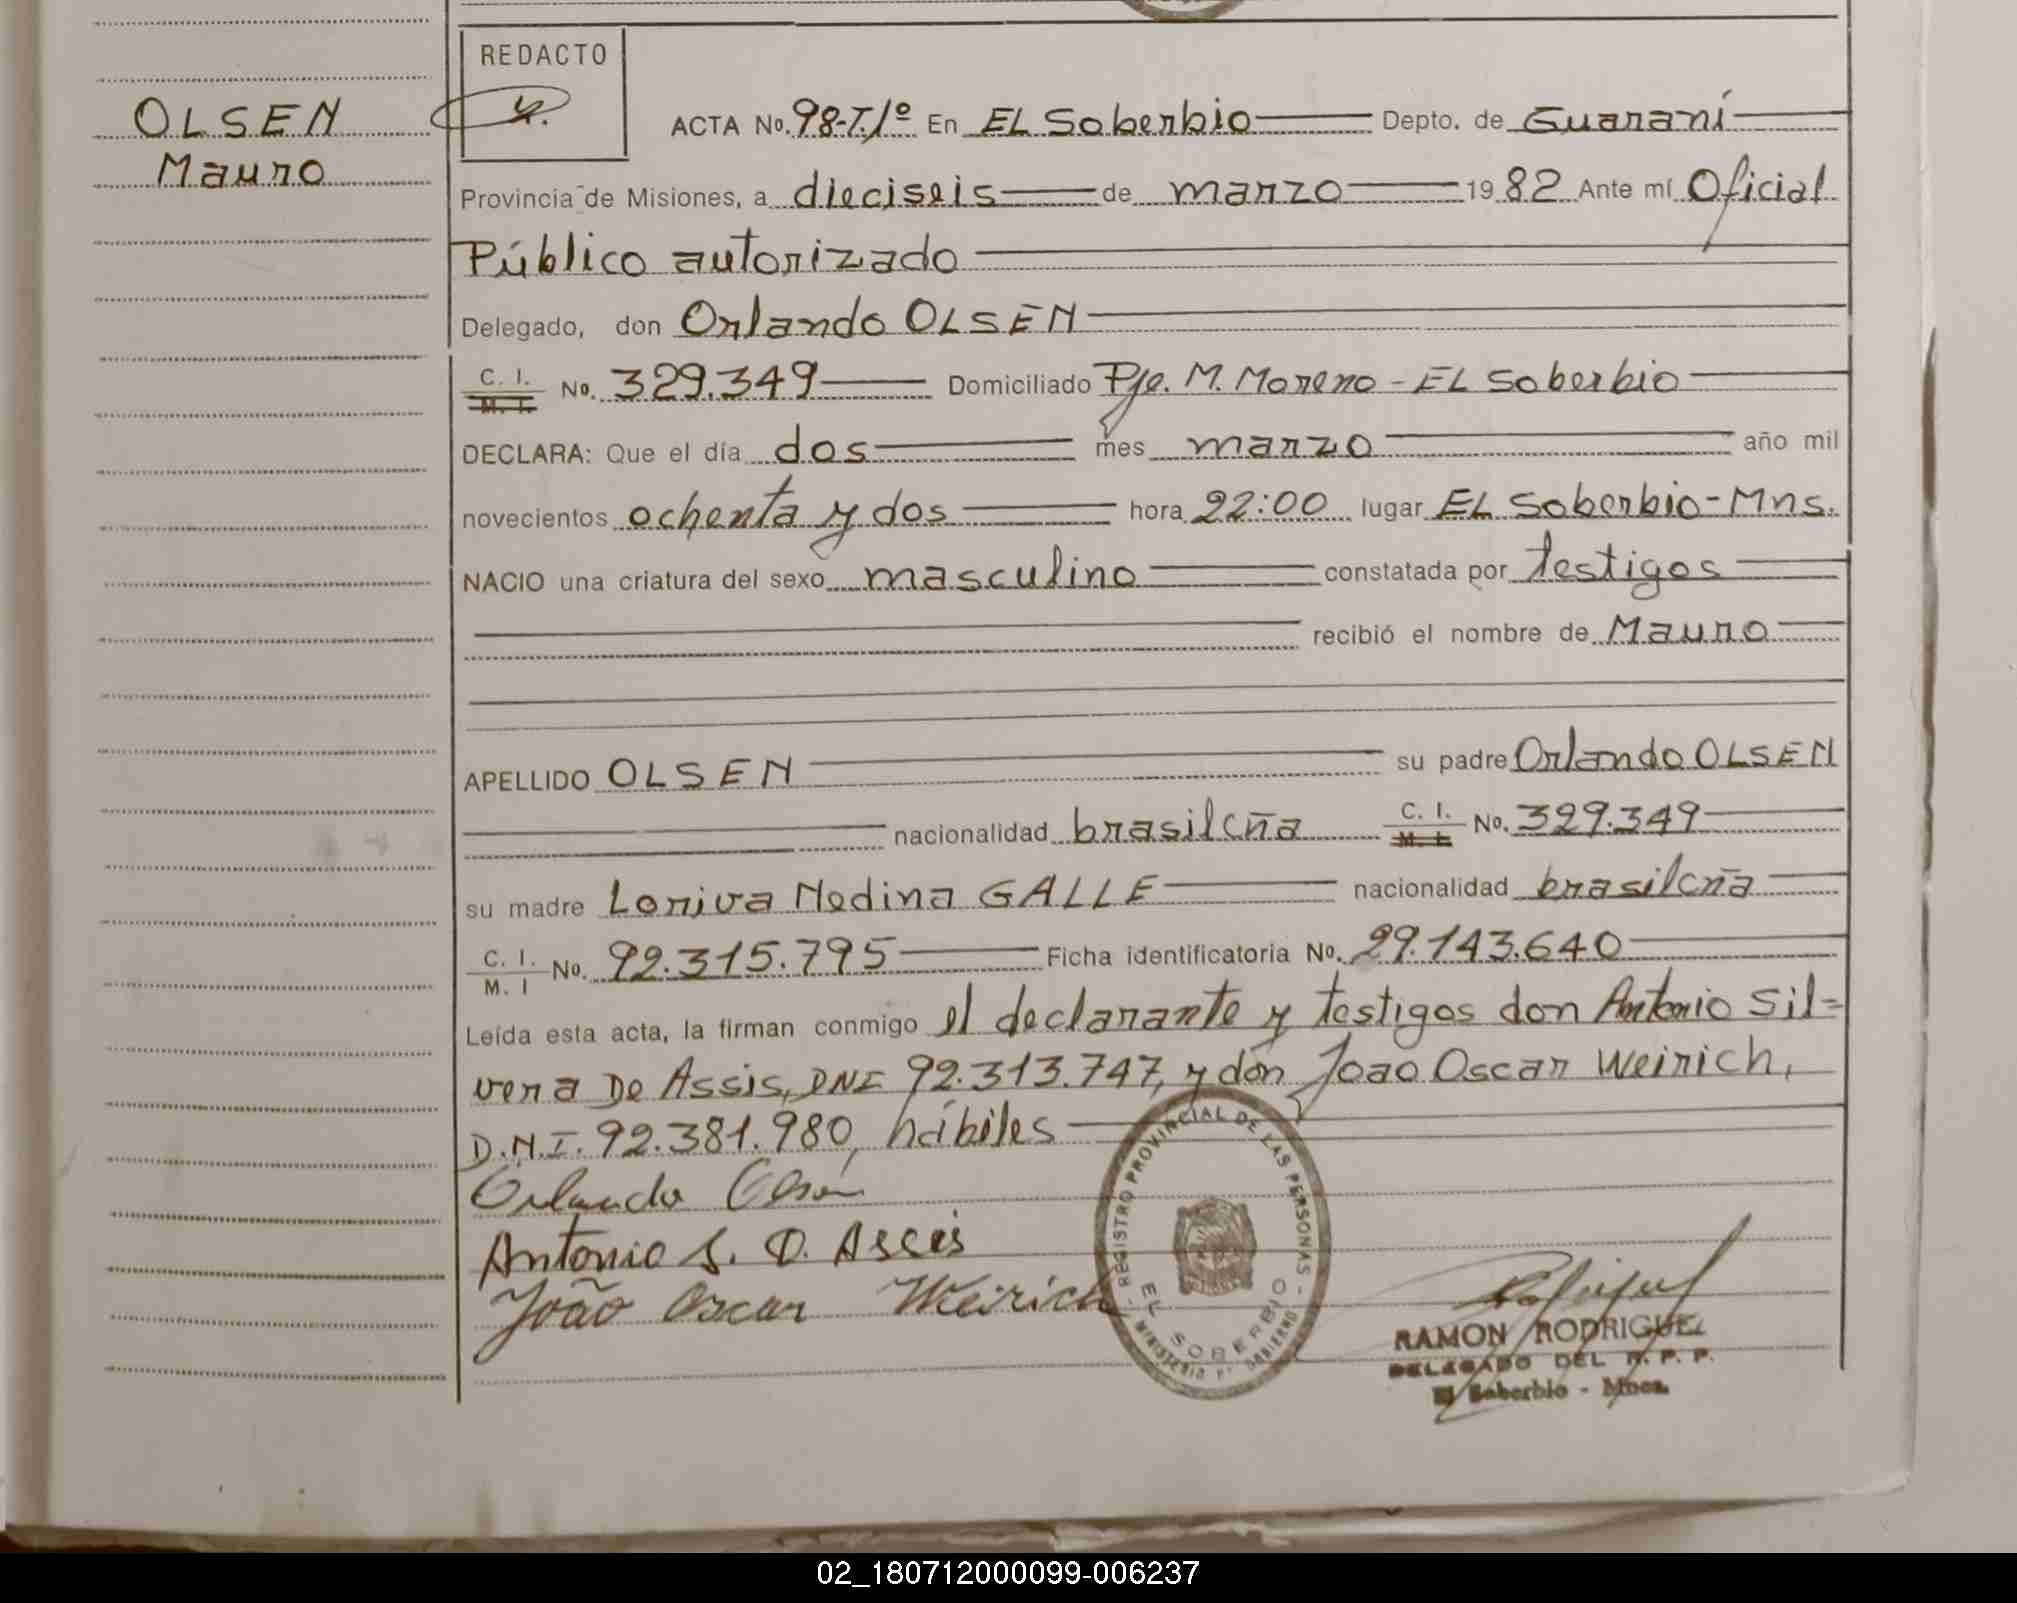 REDACTO
OLSEN
Mauro
ACTA No. 98-T.1º En EL Soberbio Depto. de Guaraní
Provincia de Misiones, a dieciseis de marzo 1982 Ante mí Oficial
Público autorizado
Delegado, don Orlando OLSEN
C. I.
M. I. No. 329.349 Domiciliado Pje. M. Moreno - EL Soberbio
DECLARA: Que el día dos mes marzo año mil
novecientos ochenta y dos hora 22:00 lugar EL Soberbio-Mns.
NACIO una criatura del sexo masculino constatada por testigos
recibió el nombre de Mauro
APELLIDO OLSEN su padre Orlando OLSEN
nacionalidad brasileña C. I. M. I. No. 329.349
su madre Loriva Nedina GALLE nacionalidad brasileña
C. I.
M. I No. 92.315.795 Ficha identificatoria No. 29.143.640
Leída esta acta, la firman conmigo el declarante y testigos don Antonio Sil=
vera De Assis, DNI 92.313.747, y don Joao Oscar Weirich,
D.N.I. 92.381.980, hábiles
Orlando Olsen
Antonio S. D. Assis
João Oscar Weirich
REGISTRO PROVINCIAL DE LAS PERSONAS
EL SOBERBIO
MINISTERIO DE GOBIERNO
RAMON RODRIGUEZ
DELEGADO DEL R. P. P.
El Soberbio - Mnes.
02_180712000099-006237